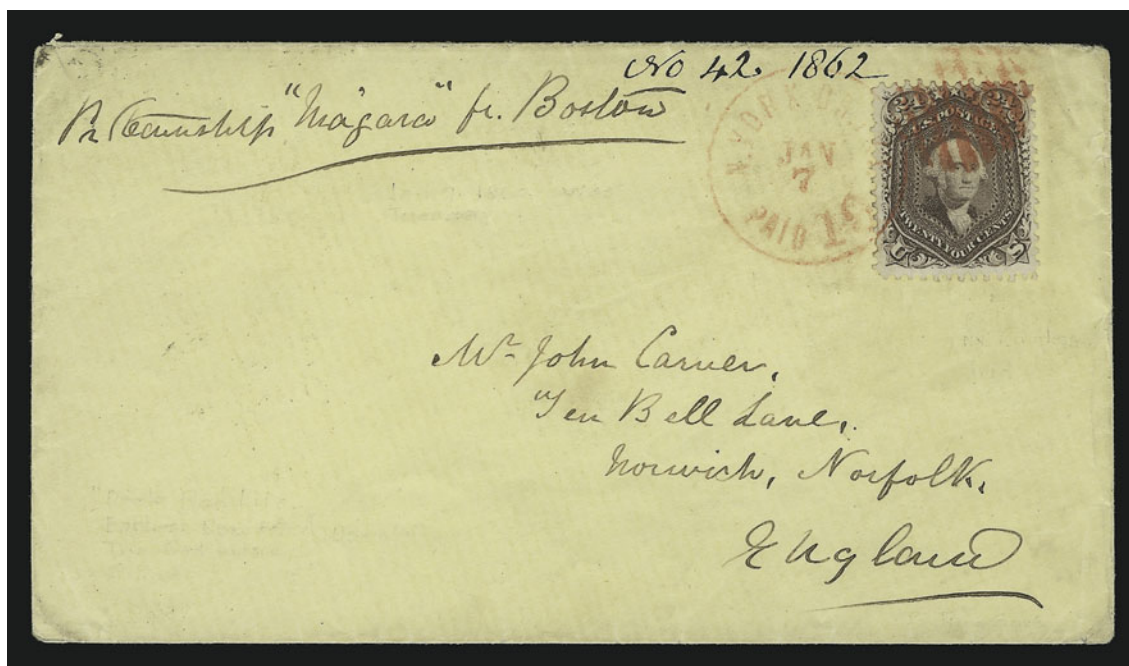 No 42. 1862
Pr Steamship "Niagara" fr. Boston
N. YORK
JAN
7
PAID
24 24
U.S. POSTAGE
TWENTY FOUR CENTS
U S
Mr John Carver,
Ten Bell Lane,
Norwich, Norfolk.
England